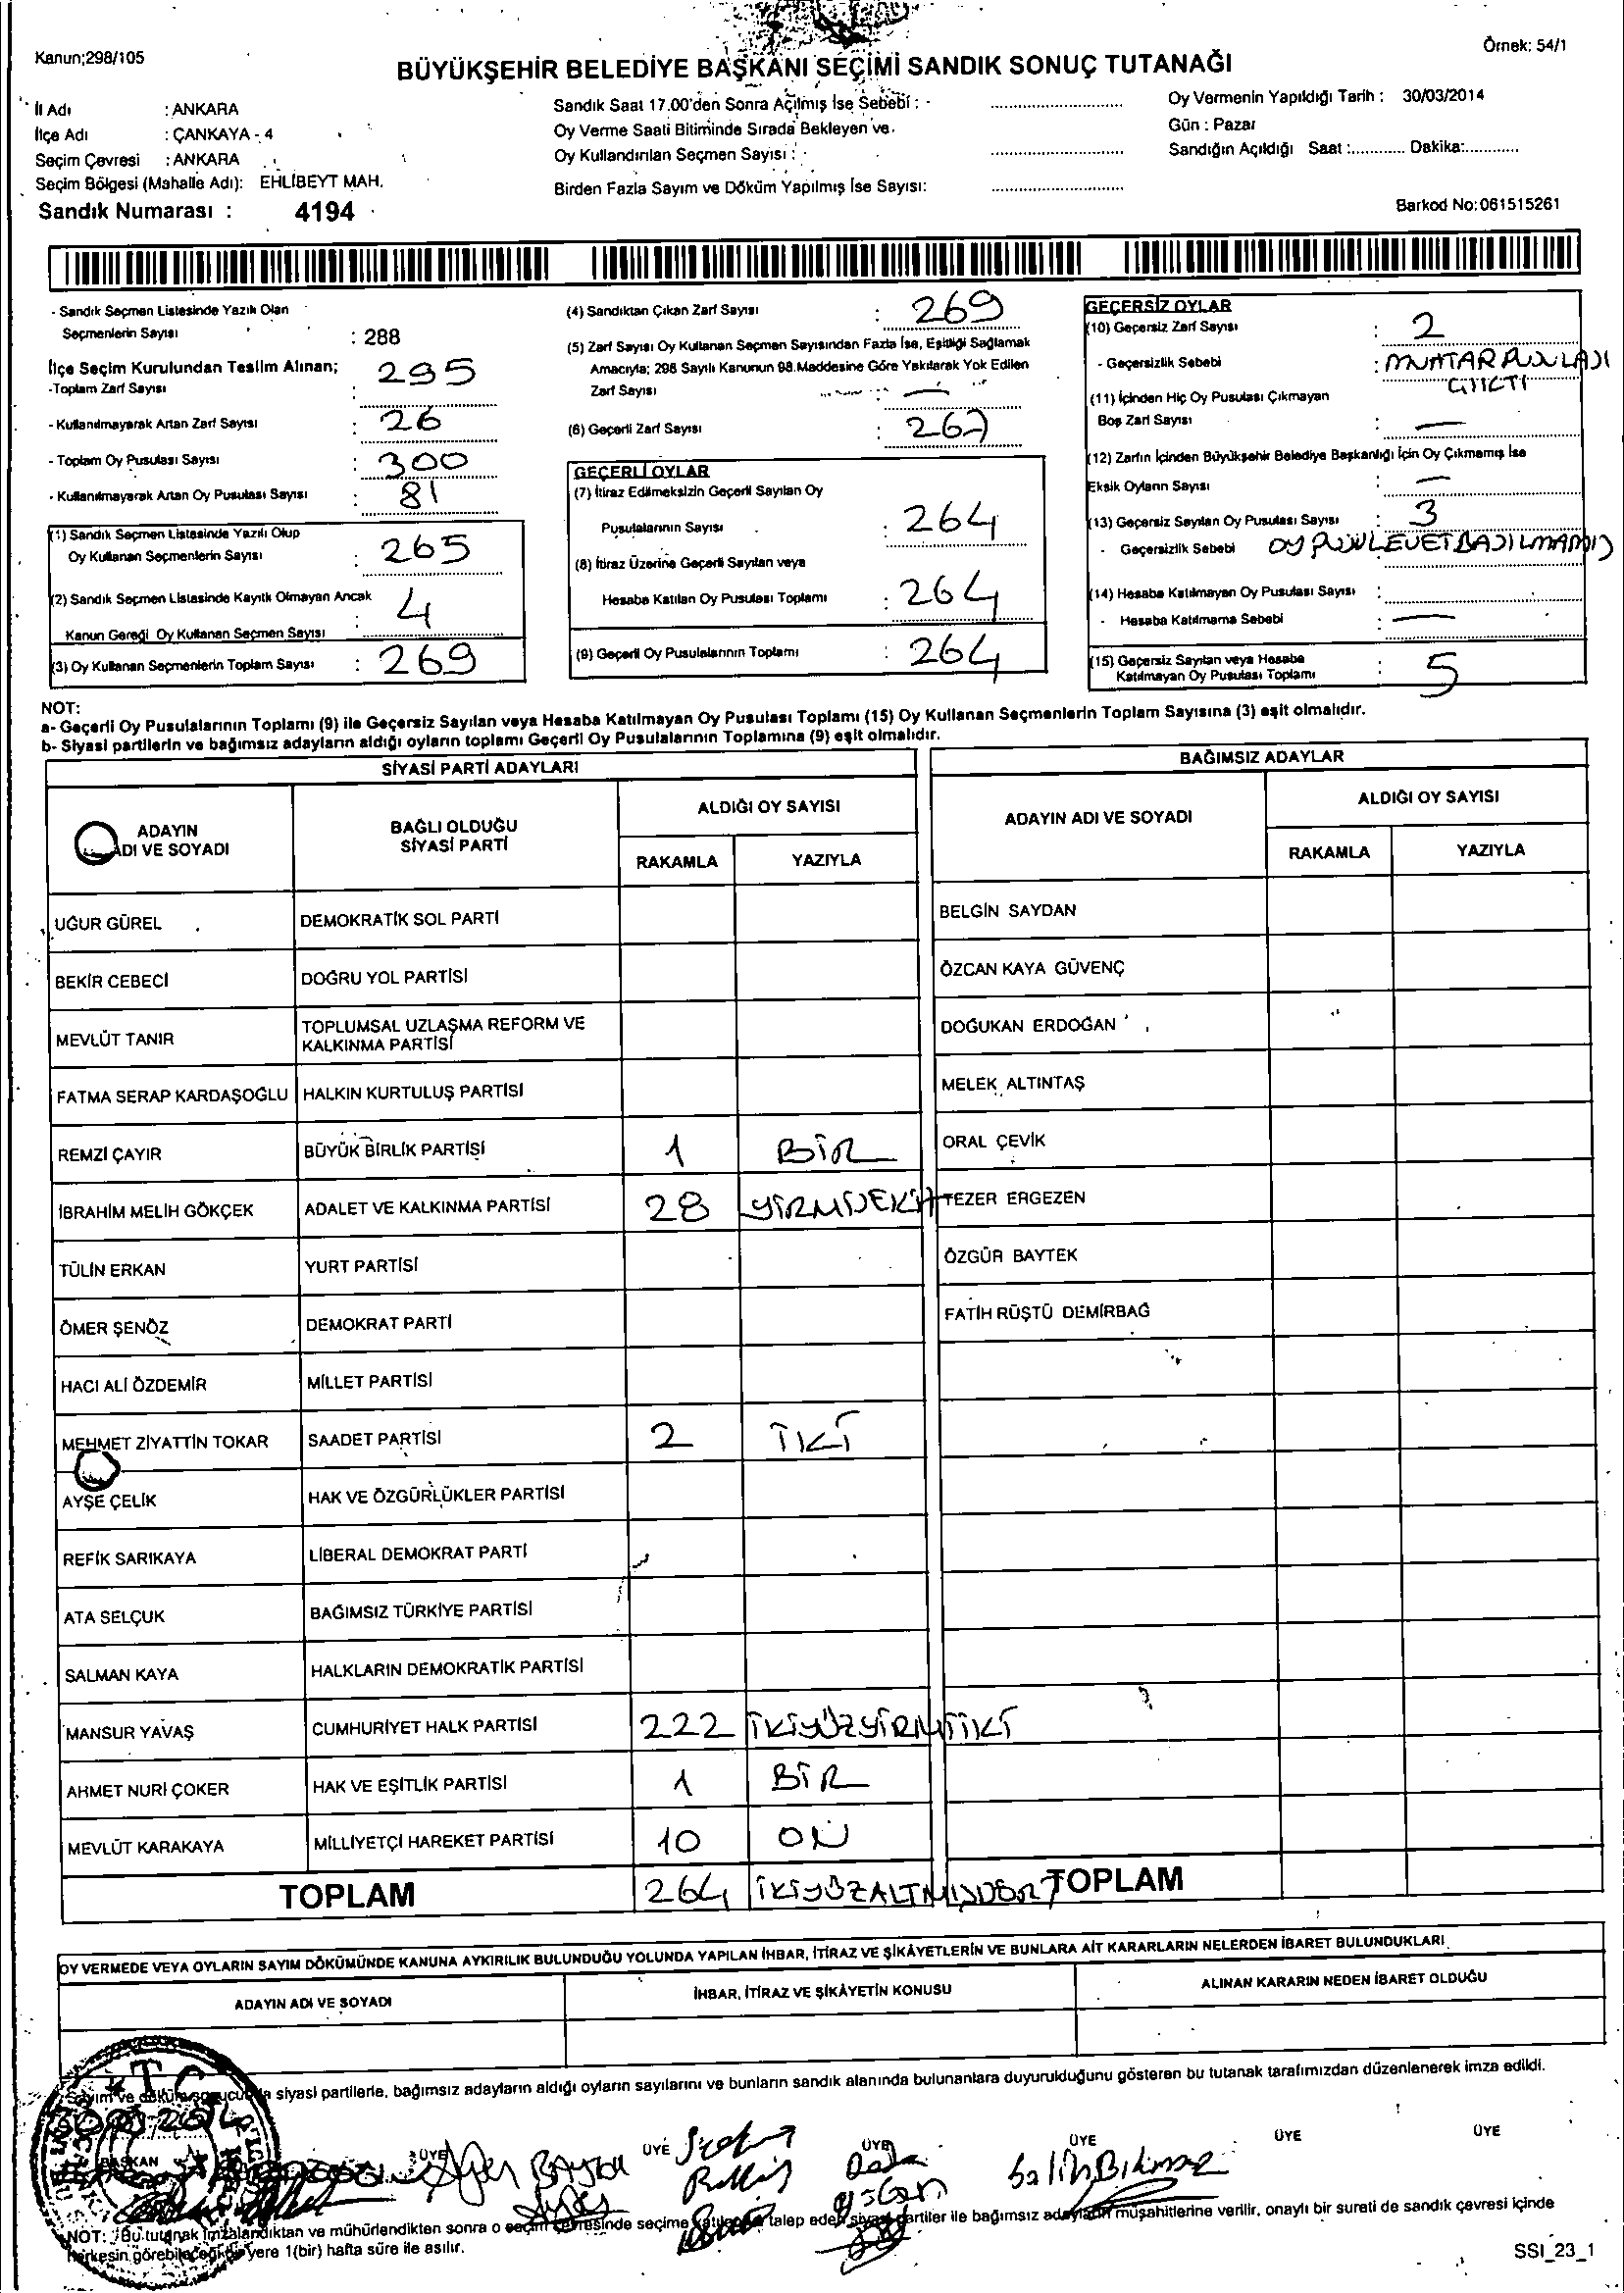 Kanun;298/105
Örnek: 54/1
BÜYÜKŞEHİR BELEDİYE BAŞKANI SEÇİMİ SANDIK SONUÇ TUTANAĞI
İl Adı : ANKARA
İlçe Adı : ÇANKAYA - 4
Seçim Çevresi : ANKARA
Seçim Bölgesi (Mahalle Adı): EHLİBEYT MAH.
Sandık Numarası : 4194
Sandık Saat 17.00'den Sonra Açılmış İse Sebebi : -
Oy Verme Saati Bitiminde Sırada Bekleyen ve
Oy Kullandırılan Seçmen Sayısı :
Birden Fazla Sayım ve Döküm Yapılmış İse Sayısı:
Oy Vermenin Yapıldığı Tarih : 30/03/2014
Gün : Pazar
Sandığın Açıldığı Saat :............ Dakika:............
Barkod No:061515261
- Sandık Seçmen Listesinde Yazılı Olan
Seçmenlerin Sayısı : 288
İlçe Seçim Kurulundan Teslim Alınan;
-Toplam Zarf Sayısı 295
- Kullanılmayarak Artan Zarf Sayısı : 26
- Toplam Oy Pusulası Sayısı : 300
- Kullanılmayarak Artan Oy Pusulası Sayısı : 81
(1) Sandık Seçmen Listesinde Yazılı Olup
Oy Kullanan Seçmenlerin Sayısı : 265
(2) Sandık Seçmen Listesinde Kayıtlı Olmayan Ancak
Kanun Gereği Oy Kullanan Seçmen Sayısı : 4
(3) Oy Kullanan Seçmenlerin Toplam Sayısı : 269
(4) Sandıktan Çıkan Zarf Sayısı : 269
(5) Zarf Sayısı Oy Kullanan Seçmen Sayısından Fazla İse, Eşitliği Sağlamak
Amacıyla; 298 Sayılı Kanunun 98.Maddesine Göre Yakılarak Yok Edilen
Zarf Sayısı : —
(6) Geçerli Zarf Sayısı : 267
GEÇERLİ OYLAR
(7) İtiraz Edilmeksizin Geçerli Sayılan Oy
Pusulalarının Sayısı : 264
(8) İtiraz Üzerine Geçerli Sayılan veya
Hesaba Katılan Oy Pusulası Toplamı : 264
(9) Geçerli Oy Pusulalarının Toplamı : 264
GEÇERSİZ OYLAR
(10) Geçersiz Zarf Sayısı : 2
- Geçersizlik Sebebi : MUHTAR PUSULASI
(11) İçinden Hiç Oy Pusulası Çıkmayan
Boş Zarf Sayısı : —
(12) Zarfın İçinden Büyükşehir Belediye Başkanlığı İçin Oy Çıkmamış İse
Eksik Oyların Sayısı : —
(13) Geçersiz Sayılan Oy Pusulası Sayısı : 3
- Geçersizlik Sebebi
(14) Hesaba Katılmayan Oy Pusulası Sayısı :
- Hesaba Katılmama Sebebi : —
(15) Geçersiz Sayılan veya Hesaba
Katılmayan Oy Pusulası Toplamı : 5
NOT:
a- Geçerli Oy Pusulalarının Toplamı (9) ile Geçersiz Sayılan veya Hesaba Katılmayan Oy Pusulası Toplamı (15) Oy Kullanan Seçmenlerin Toplam Sayısına (3) eşit olmalıdır.
b- Siyasi partilerin ve bağımsız adayların aldığı oyların toplamı Geçerli Oy Pusulalarının Toplamına (9) eşit olmalıdır.
SİYASİ PARTİ ADAYLARI
ADAYIN
ADI VE SOYADI
BAĞLI OLDUĞU
SİYASİ PARTİ
ALDIĞI OY SAYISI
RAKAMLA YAZIYLA
UĞUR GÜREL DEMOKRATİK SOL PARTİ
BEKİR CEBECİ DOĞRU YOL PARTİSİ
MEVLÜT TANIR TOPLUMSAL UZLAŞMA REFORM VE
KALKINMA PARTİSİ
FATMA SERAP KARDAŞOĞLU HALKIN KURTULUŞ PARTİSİ
REMZİ ÇAYIR BÜYÜK BİRLİK PARTİSİ 1 BİR
İBRAHİM MELİH GÖKÇEK ADALET VE KALKINMA PARTİSİ 28 YİRMİSEKİZ
TÜLİN ERKAN YURT PARTİSİ
ÖMER ŞENÖZ DEMOKRAT PARTİ
HACI ALİ ÖZDEMİR MİLLET PARTİSİ
MEHMET ZİYATTİN TOKAR SAADET PARTİSİ 2 İKİ
AYŞE ÇELİK HAK VE ÖZGÜRLÜKLER PARTİSİ
REFİK SARIKAYA LİBERAL DEMOKRAT PARTİ
ATA SELÇUK BAĞIMSIZ TÜRKİYE PARTİSİ
SALMAN KAYA HALKLARIN DEMOKRATİK PARTİSİ
MANSUR YAVAŞ CUMHURİYET HALK PARTİSİ 222 İKİYÜZYİRMİİKİ
AHMET NURİ ÇOKER HAK VE EŞİTLİK PARTİSİ 1 BİR
MEVLÜT KARAKAYA MİLLİYETÇİ HAREKET PARTİSİ 10 ON
TOPLAM 264 İKİYÜZALTMIŞDÖRT
BAĞIMSIZ ADAYLAR
ADAYIN ADI VE SOYADI
ALDIĞI OY SAYISI
RAKAMLA YAZIYLA
BELGİN SAYDAN
ÖZCAN KAYA GÜVENÇ
DOĞUKAN ERDOĞAN
MELEK ALTINTAŞ
ORAL ÇEVİK
TEZER ERGEZEN
ÖZGÜR BAYTEK
FATİH RÜŞTÜ DEMİRBAĞ
TOPLAM
OY VERMEDE VEYA OYLARIN SAYIM DÖKÜMÜNDE KANUNA AYKIRILIK BULUNDUĞU YOLUNDA YAPILAN İHBAR, İTİRAZ VE ŞİKÂYETLERİN VE BUNLARA AİT KARARLARIN NELERDEN İBARET BULUNDUKLARI
ADAYIN ADI VE SOYADI
İHBAR, İTİRAZ VE ŞİKÂYETİN KONUSU
ALINAN KARARIN NEDEN İBARET OLDUĞU
Sayım ve döküm sonucunda siyasi partilerle, bağımsız adayların aldığı oyların sayılarını ve bunların sandık alanında bulunanlara duyurulduğunu gösteren bu tutanak tarafımızdan düzenlenerek imza edildi.
BAŞKAN ÜYE ÜYE ÜYE ÜYE ÜYE ÜYE
Salih Bıkmaz
NOT: Bu tutanak imzalandıktan ve mühürlendikten sonra o seçim çevresinde seçime katılan ve talep eden siyasi partiler ile bağımsız adayların müşahitlerine verilir, onaylı bir sureti de sandık çevresi içinde
herkesin görebileceği bir yere 1(bir) hafta süre ile asılır.
SSI_23_1